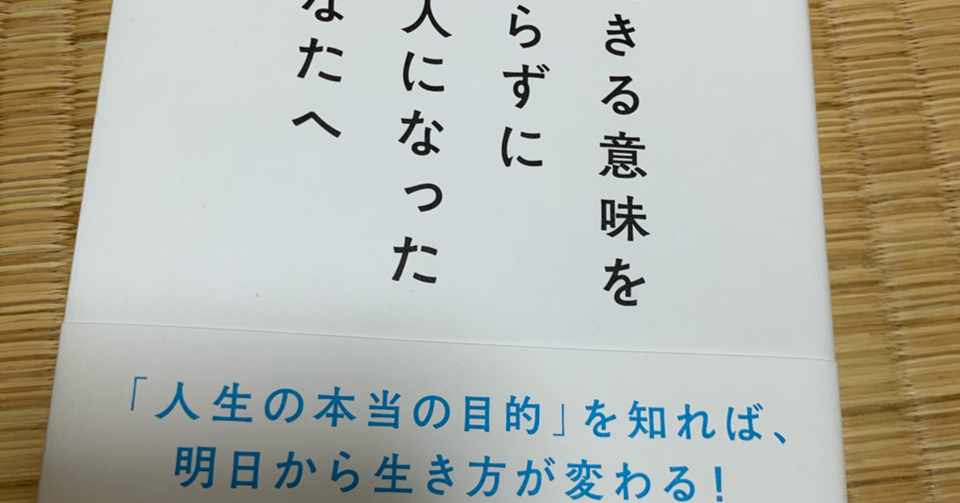 きる意味を
らずに
人になった
なたへ
「人生の本当の目的」を知れば、
明日から生き方が変わる!